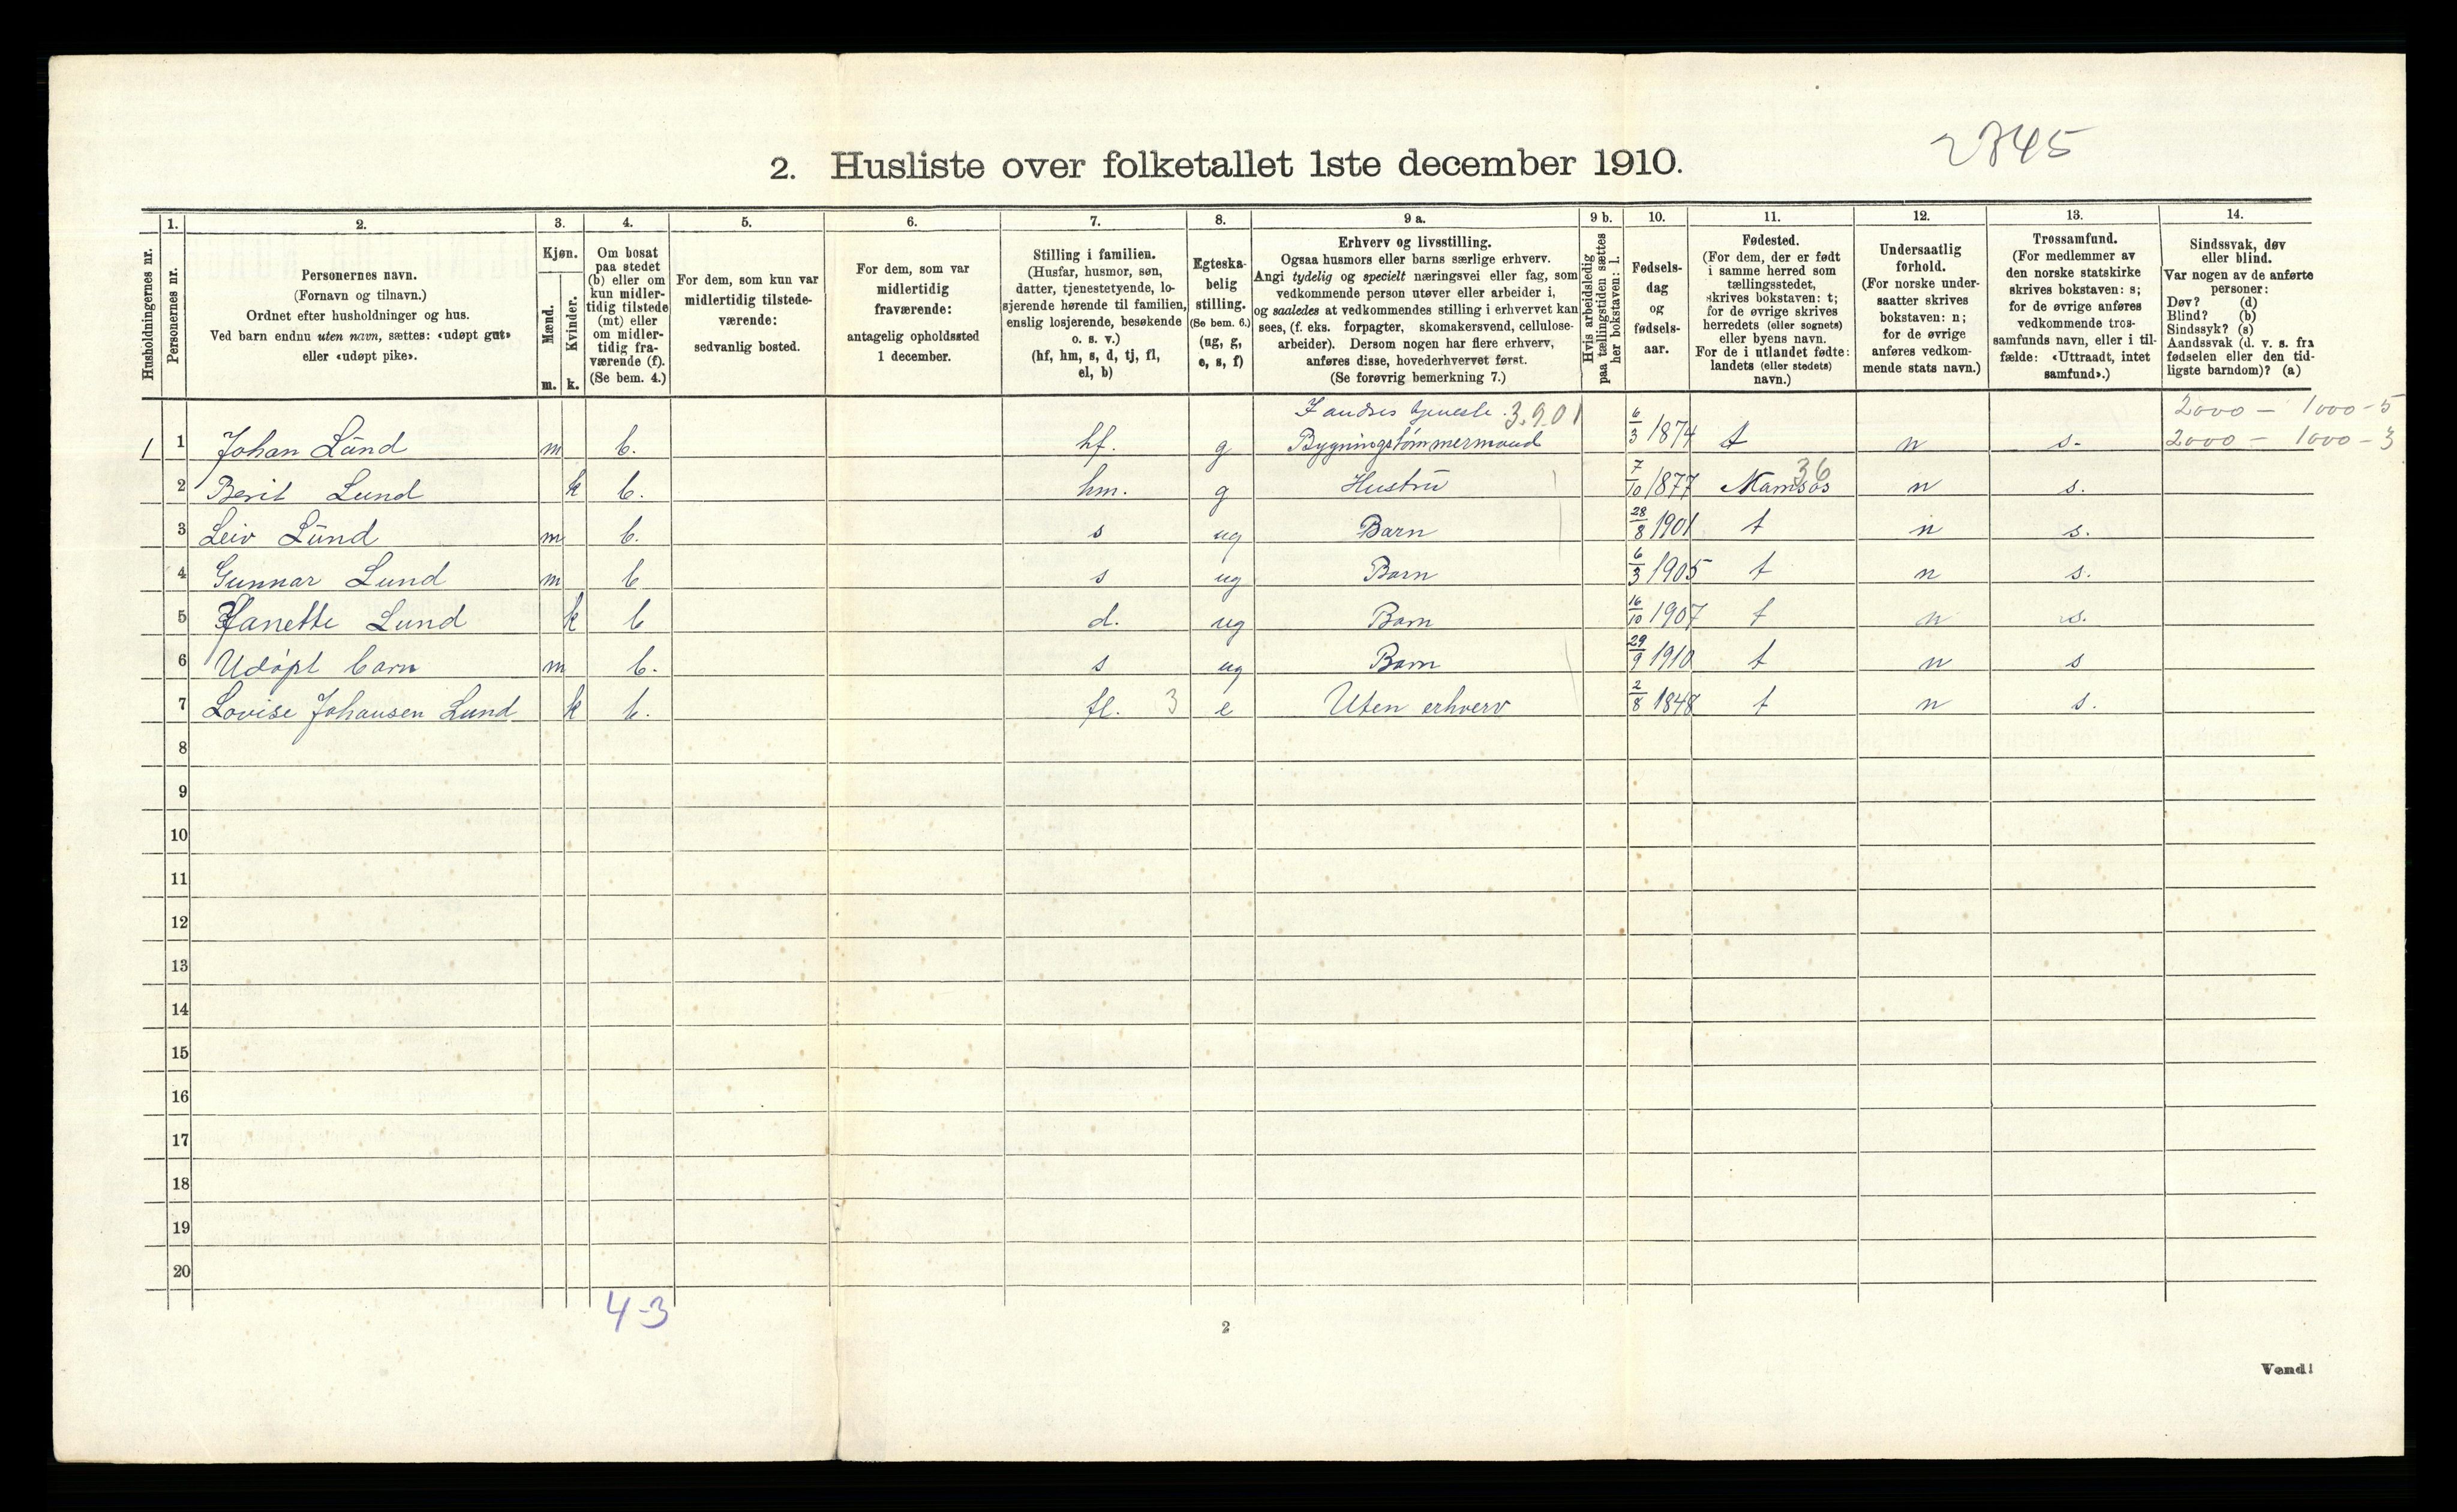 2845
2. Husliste over folketallet 1ste december 1910.
Husholdningernes nr.
1.
Personernes nr.
2.
Personernes navn.
(Fornavn og tilnavn.)
Ordnet efter husholdninger og hus.
Ved barn endnu uten navn, sættes: «udøpt gut»
eller «udøpt pike».
3.
Kjøn.
Mænd.
Kvinder.
m. k.
4.
Om bosat
paa stedet
(b) eller om
kun midler-
tidig tilstede
(mt) eller
om midler-
tidig fra-
værende (f).
(Se bem. 4.)
5.
For dem, som kun var
midlertidig tilstede-
værende:
sedvanlig bosted.
6.
For dem, som var
midlertidig
fraværende:
antagelig opholdssted
1 december.
7.
Stilling i familien.
(Husfar, husmor, søn,
datter, tjenestetyende, lo-
sjerende hørende til familien,
enslig losjerende, besøkende
o. s. v.)
(hf, hm, s, d, tj, fl,
el, b)
8.
Egteska-
belig
stilling.
(Se bem. 6.)
(ug, g,
e, s, f)
9 a.
Erhverv og livsstilling.
Ogsaa husmors eller barns særlige erhverv.
Angi tydelig og specielt næringsvei eller fag, som
vedkommende person utøver eller arbeider i,
og saaledes at vedkommendes stilling i erhvervet kan
sees, (f. eks. forpagter, skomakersvend, cellulose-
arbeider). Dersom nogen har flere erhverv,
anføres disse, hovederhvervet først.
(Se forøvrig bemerkning 7.)
9 b.
Hvis arbeidsledig
paa tællingstiden sættes
her bokstaven: l.
10.
Fødsels-
dag
og
fødsels-
aar.
11.
Fødested.
(For dem, der er født
i samme herred som
tællingsstedet,
skrives bokstaven: t;
for de øvrige skrives
herredets (eller sognets)
eller byens navn.
For de i utlandet fødte:
landets (eller stedets)
navn.)
12.
Undersaatlig
forhold.
(For norske under-
saatter skrives
bokstaven: n;
for de øvrige
anføres vedkom-
mende stats navn.)
13.
Trossamfund.
(For medlemmer av
den norske statskirke
skrives bokstaven: s;
for de øvrige anføres
vedkommende tros-
samfunds navn, eller i til-
fælde: «Uttraadt, intet
samfund».)
14.
Sindssvak, døv
eller blind.
Var nogen av de anførte
personer:
Døv? (d)
Blind? (b)
Sindssyk? (s)
Aandssvak (d. v. s. fra
fødselen eller den tid-
ligste barndom)? (a)
I andres tjeneste. 3.9.01 2000 - 1000 - 5
1 1 Johan Lund m b. hf. g Bygningstømmermand 6/3 1874 t n s. 2000 - 1000 - 3
2 Berit Lund k b. hm. g Hustru 7/10 1877 Namsos 36 n s.
3 Leiv Lund m b. s ug Barn 28/8 1901 t n s.
4 Gunnar Lund m b s ug Barn 6/3 1905 t n s.
5 Hanette Lund k b d. ug Barn 16/10 1907 t n s.
6 Udøpt barn m b. s ug Barn 29/9 1910 t n s
7 Lovise Johansen Lund k b. fl. 3 e Uten erhverv 2/8 1848 t n s.
8
9
10
11
12
13
14
15
16
17
18
19
20
4-3
2
Vend!